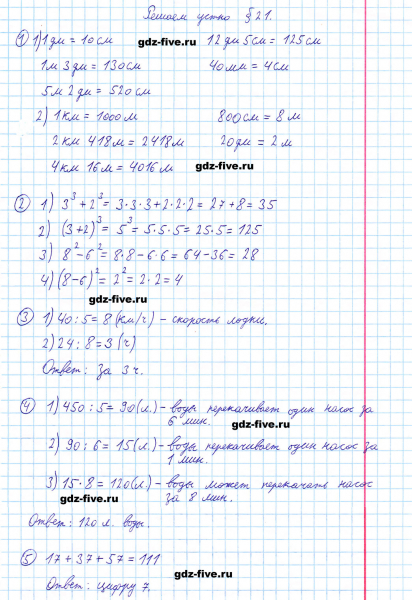 Решаем устно §21.
① 1) 1 дм = 10 см 12 дм 5 см = 125 см
gdz-five.ru
1 м 3 дм = 130 см 40 мм = 4 см
5 м 2 дм = 520 см
2) 1 км = 1000 м 800 см = 8 м
2 км 418 м = 2418 м 20 дм = 2 м
4 км 16 м = 4016 м gdz-five.ru
② 1) 3³ + 2³ = 3·3·3 + 2·2·2 = 27 + 8 = 35
2) (3+2)³ = 5³ = 5·5·5 = 25·5 = 125
3) 8² - 6² = 8·8 - 6·6 = 64 - 36 = 28
4) (8-6)² = 2² = 2·2 = 4
gdz-five.ru
③ 1) 40 : 5 = 8 (км/ч) - скорость лодки.
2) 24 : 8 = 3 (ч)
Ответ: за 3 ч.
④ 1) 450 : 5 = 90 (л.) - воды перекачивает один насос за
6 мин.
gdz-five.ru
2) 90 : 6 = 15 (л.) - воды перекачивает один насос за
1 мин.
3) 15 · 8 = 120 (л.) - воды может перекачать насос
за 8 мин.
gdz-five.ru
Ответ: 120 л. воды.
⑤ 17 + 37 + 57 = 111
gdz-five.ru
Ответ: цифру 7.